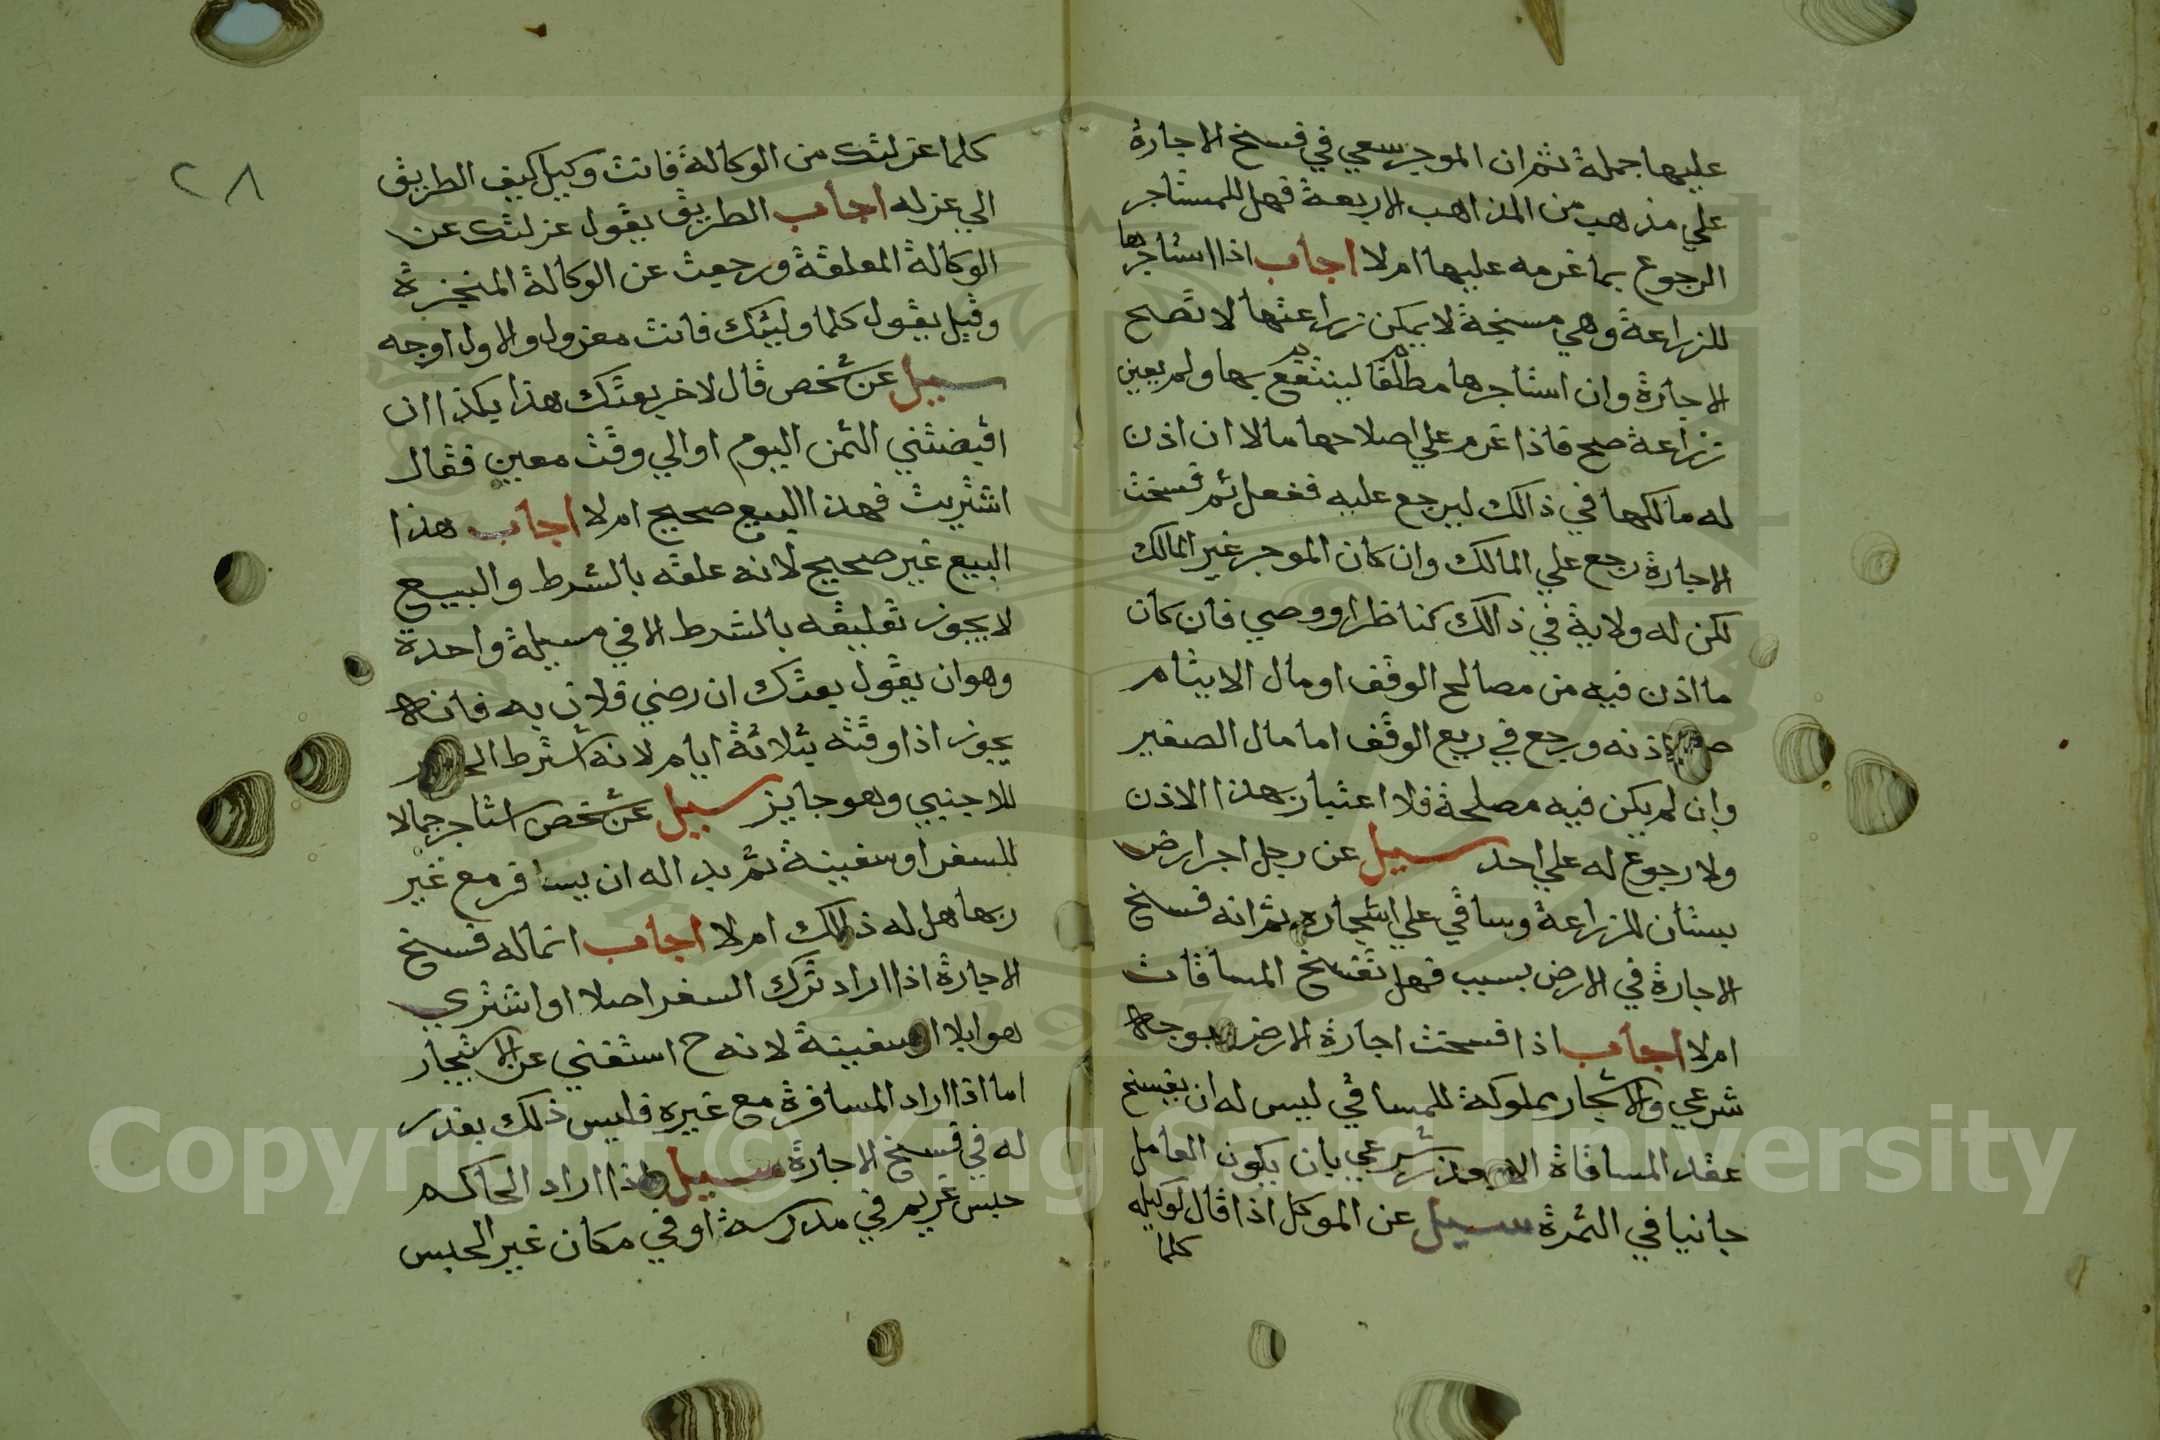 عليها جملة ثم ان الموجر سعي في فسخ الاجارة
علي مذهب من المذاهب الاربعة فهل للمستاجر
الرجوع بما غرمه عليها ام لا اجاب اذا استاجرها
للزراعة وهي مسبخة لا يمكن زراعتها لا تصح
الاجارة وان استاجرها مطلقا لينتفع بها ولم يعين
زراعة صح فاذا غرم علي اصلاحها مالا ان اذن
له مالكها في ذالك ليرجع عليه ففعل ثم فسخت
الاجارة رجع علي المالك وان كان الموجر غير المالك
لكن له ولاية في ذالك كناظر او وصي فان كان
ما اذن فيه من مصالح الوقف او مال الايتام
اذنه ورجع في ريع الوقف اما مال الصغير
وان لم يكن فيه مصلحة فلا اعتبار بهذا الاذن
ولا رجوع له علي احد سيل عن رجل اجر ارض
بستان للزراعة وساقي علي اشجاره ثم انه فسخ
الاجارة في الارض بسبب فهل تفسخ المساقات
ام لا اجاب اذا فسخت اجارة الارض بوجه
شرعي والاشجار مملوكة للمساقي ليس له ان يفسخ
عقد المساقاة الا بعذر شرعي بان يكون العامل
جانيا في الثمرة سيل عن الموكل اذا قال لوكيله
كلما
٢٨
كلما عزلتك من الوكالة فانت وكيل كيف الطريق
الي عزله اجاب الطريق يقول عزلتك عن
الوكالة المعلقة ورجعت عن الوكالة المنجزة
وقيل يقول كلما وليتك فانت معزول والاول اوجه
سيل عن شخص قال لاخر بعتك هذا بكذا ان
اقبضتني الثمن اليوم او الي وقت معين فقال
اشتريت فهذا البيع صحيح ام لا اجاب هذا
البيع غير صحيح لانه علقه بالشرط والبيع
لا يجوز تعليقه بالشرط الا في مسيلة واحدة
وهو ان يقول بعتك ان رضي فلان به فانه
يجوز اذا وقته بثلاثة ايام لانه اشترط
للاجنبي وهو جايز سيل عن شخص استاجر جمالا
للسفر او سفينة ثم بدا له ان يسافر مع غير
ربها هل له ذالك ام لا اجاب انما له فسخ
الاجارة اذا اراد ترك السفر اصلا او اشتري
هو ابلا او سفينة لانه ح استغني عن الاستيجار
اما اذا اراد المسافرة مع غيره فليس ذلك بعذر
له في فسخ الاجارة سيل اذا اراد الحاكم
حبس غريم في مدرسة او في مكان غير الحبس
Copyright © King Saud University